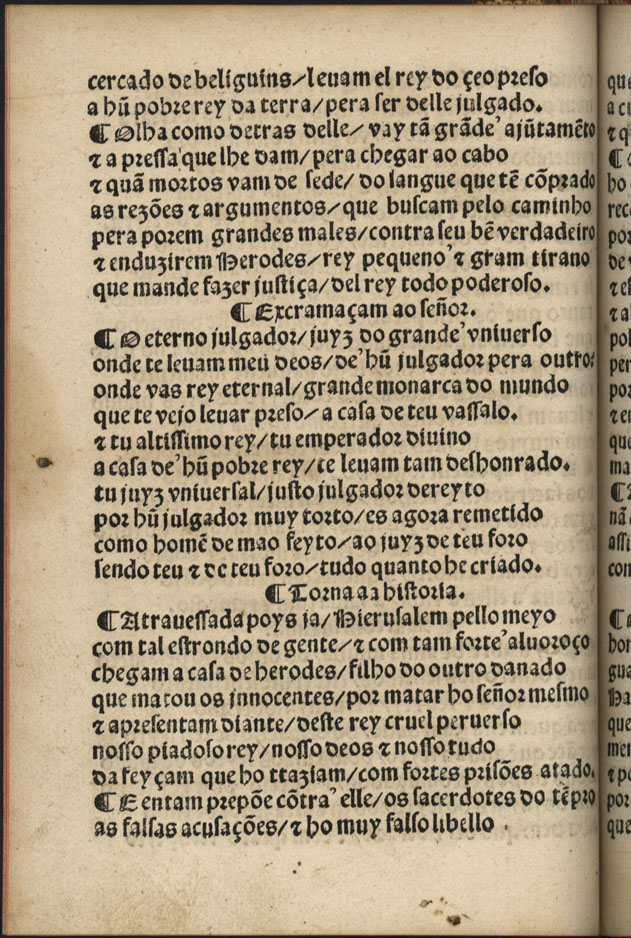 cercado de beliguins/leuam el rey do çeo preso
a hũ pobre rey da terra/pera ser delle julgado.
¶ Olha como detras delle/ vay tã grãde' ajũtamẽto
⁊ a pressa'que lhe dam/pera chegar ao cabo
⁊ quã mortos vam de sede/ do sangue que tẽ cõprado
as rezões ⁊ argumentos/que buscam pelo caminho
pera porem grandes males/contra seu bẽ verdadeiro
⁊ enduzirem Herodes/rey pequeno' ⁊ gram tirano
que mande fazer justiça/del rey todo poderoso.
¶ Excramaçam ao señor.
¶ O eterno julgador/juyz do grande' vniuerso
onde te leuam meu deos/de' hũ julgador pera outro:
onde vas rey eternal/grande monarca do mundo
que te vejo leuar preso/a casa de teu vassalo.
⁊ tu altissimo rey/tu emperador diuino
a casa de' hũ pobre rey/te leuam tam deshonrado.
tu juyz vniuersal/justo julgador dereyto
por hũ julgador muy torto/es agora remetido
como homẽ de mao feyto/ao juyz de teu foro
sendo teu ⁊ de teu foro/tudo quanto he criado.
¶ Torna aa historia.
¶ Atrauessada poys ja/Hierusalem pello meyo
com tal estrondo de gente/⁊ com tam forte' aluoroço
chegam a casa de herodes/filho do outro danado
que matou os jnnocentes/por matar ho señor mesmo
⁊ apresentam diante/deste rey cruel peruerso
nosso piadoso rey/nosso deos ⁊ nosso tudo
da feyçam que ho ttaziam/com fortes prisões atado.
¶ E entam prepõe cõtra' elle/os sacerdotes do tẽpro
as falsas acusações/⁊ ho muy falso libello